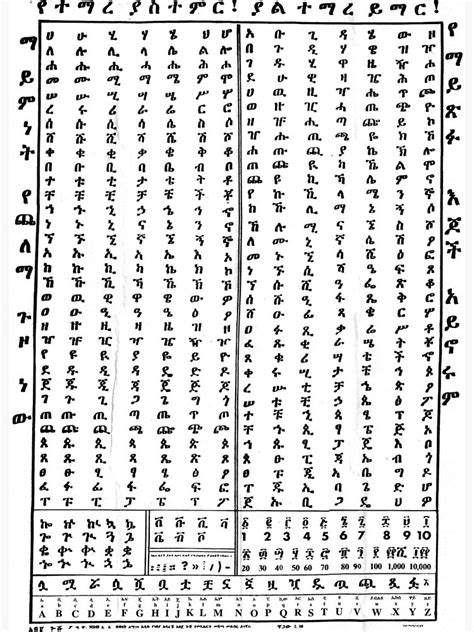 የተማረ ያስተምር! ያልተማረ ይማር!
ማይምነት የጨለማ ጉዞ ነው
ሀ ሁ ሂ ሃ ሄ ህ ሆ
ለ ሉ ሊ ላ ሌ ል ሎ
ሐ ሑ ሒ ሓ ሔ ሕ ሖ
መ ሙ ሚ ማ ሜ ም ሞ
ሠ ሡ ሢ ሣ ሤ ሥ ሦ
ረ ሩ ሪ ራ ሬ ር ሮ
ሰ ሱ ሲ ሳ ሴ ስ ሶ
ሸ ሹ ሺ ሻ ሼ ሽ ሾ
ቀ ቁ ቂ ቃ ቄ ቅ ቆ
በ ቡ ቢ ባ ቤ ብ ቦ
ተ ቱ ቲ ታ ቴ ት ቶ
ቸ ቹ ቺ ቻ ቼ ች ቾ
ኀ ኁ ኂ ኃ ኄ ኅ ኆ
ነ ኑ ኒ ና ኔ ን ኖ
ኘ ኙ ኚ ኛ ኜ ኝ ኞ
አ ኡ ኢ ኣ ኤ እ ኦ
ከ ኩ ኪ ካ ኬ ክ ኮ
ኸ ኹ ኺ ኻ ኼ ኽ ኾ
ወ ዉ ዊ ዋ ዌ ው ዎ
ዐ ዑ ዒ ዓ ዔ ዕ ዖ
ዘ ዙ ዚ ዛ ዜ ዝ ዞ
ዠ ዡ ዢ ዣ ዤ ዥ ዦ
የ ዩ ዪ ያ ዬ ይ ዮ
ደ ዱ ዲ ዳ ዴ ድ ዶ
ጀ ጁ ጂ ጃ ጄ ጅ ጆ
ገ ጉ ጊ ጋ ጌ ግ ጎ
ጠ ጡ ጢ ጣ ጤ ጥ ጦ
ጨ ጩ ጪ ጫ ጬ ጭ ጮ
ጰ ጱ ጲ ጳ ጴ ጵ ጶ
ጸ ጹ ጺ ጻ ጼ ጽ ጾ
ፀ ፁ ፂ ፃ ፄ ፅ ፆ
ፈ ፉ ፊ ፋ ፌ ፍ ፎ
ፐ ፑ ፒ ፓ ፔ ፕ ፖ
አ ቡ ጊ ዳ ሄ ው ዞ
በ ጉ ዲ ሃ ዌ ዝ ዦ
ገ ዱ ሂ ዋ ዜ ዥ ሖ
ደ ሁ ዊ ዛ ዤ ሕ ጦ
ሀ ዉ ዚ ዣ ሔ ጥ ጮ
ወ ዙ ዢ ሓ ጤ ጭ ዮ
ዘ ዡ ሒ ጣ ጬ ይ ኮ
ዠ ሑ ጢ ጫ ዬ ክ ኾ
ሐ ጡ ጪ ያ ኬ ኽ ሎ
ጠ ጩ ዪ ካ ኼ ል ሞ
ጨ ዩ ኪ ኻ ሌ ም ኖ
የ ኩ ኺ ላ ሜ ን ኞ
ከ ኹ ሊ ማ ኔ ኝ ሶ
ኸ ሉ ሚ ና ኜ ስ ሾ
ለ ሙ ኒ ኛ ሴ ሽ ዖ
መ ኑ ኚ ሳ ሼ ዕ ፎ
ነ ኙ ሲ ሻ ዔ ፍ ጾ
ኘ ሱ ሺ ዓ ፌ ጽ ፆ
ሰ ሹ ዒ ፋ ጼ ፅ ቆ
ሸ ዑ ፊ ጻ ፄ ቅ ሮ
ዐ ፉ ጺ ፃ ቄ ር ሦ
ፈ ጹ ፂ ቃ ሬ ሥ ቶ
ጸ ፁ ቂ ራ ሤ ት ቾ
ፀ ቁ ሪ ሣ ቴ ች ኆ
ቀ ሩ ሢ ታ ቼ ኅ ጶ
ረ ሡ ቲ ቻ ኄ ጵ ፖ
ሠ ቱ ቺ ኃ ጴ ፕ ጆ
ተ ቹ ኂ ጳ ፔ ጅ ኦ
ቸ ኁ ጲ ፓ ጄ እ ቦ
ኀ ጱ ፒ ጃ ኤ ብ ጎ
ጰ ፑ ጂ ኣ ቤ ግ ዶ
ፐ ጁ ኢ ባ ጌ ድ ሆ
ጀ ኡ ቢ ጋ ዴ ህ ዎ
የማይጽፉ እጆች አይኖሩም
ቨ ቩ ቪ ቫ
ቬ ቭ ቮ
፩ ፪ ፫ ፬ ፭ ፮ ፯ ፰ ፱ ፲
1 2 3 4 5 6 7 8 9 10
፳ ፴ ፵ ፶ ፷ ፸ ፹ ፺ ፻ ፲፻ ፼
20 30 40 50 60 70 80 90 100 1,000 10,000
a b c d e f g h i j k l m n o p q r s t u v w x y z
A B C D E F G H I J K L M N O P Q R S T U V W X Y Z